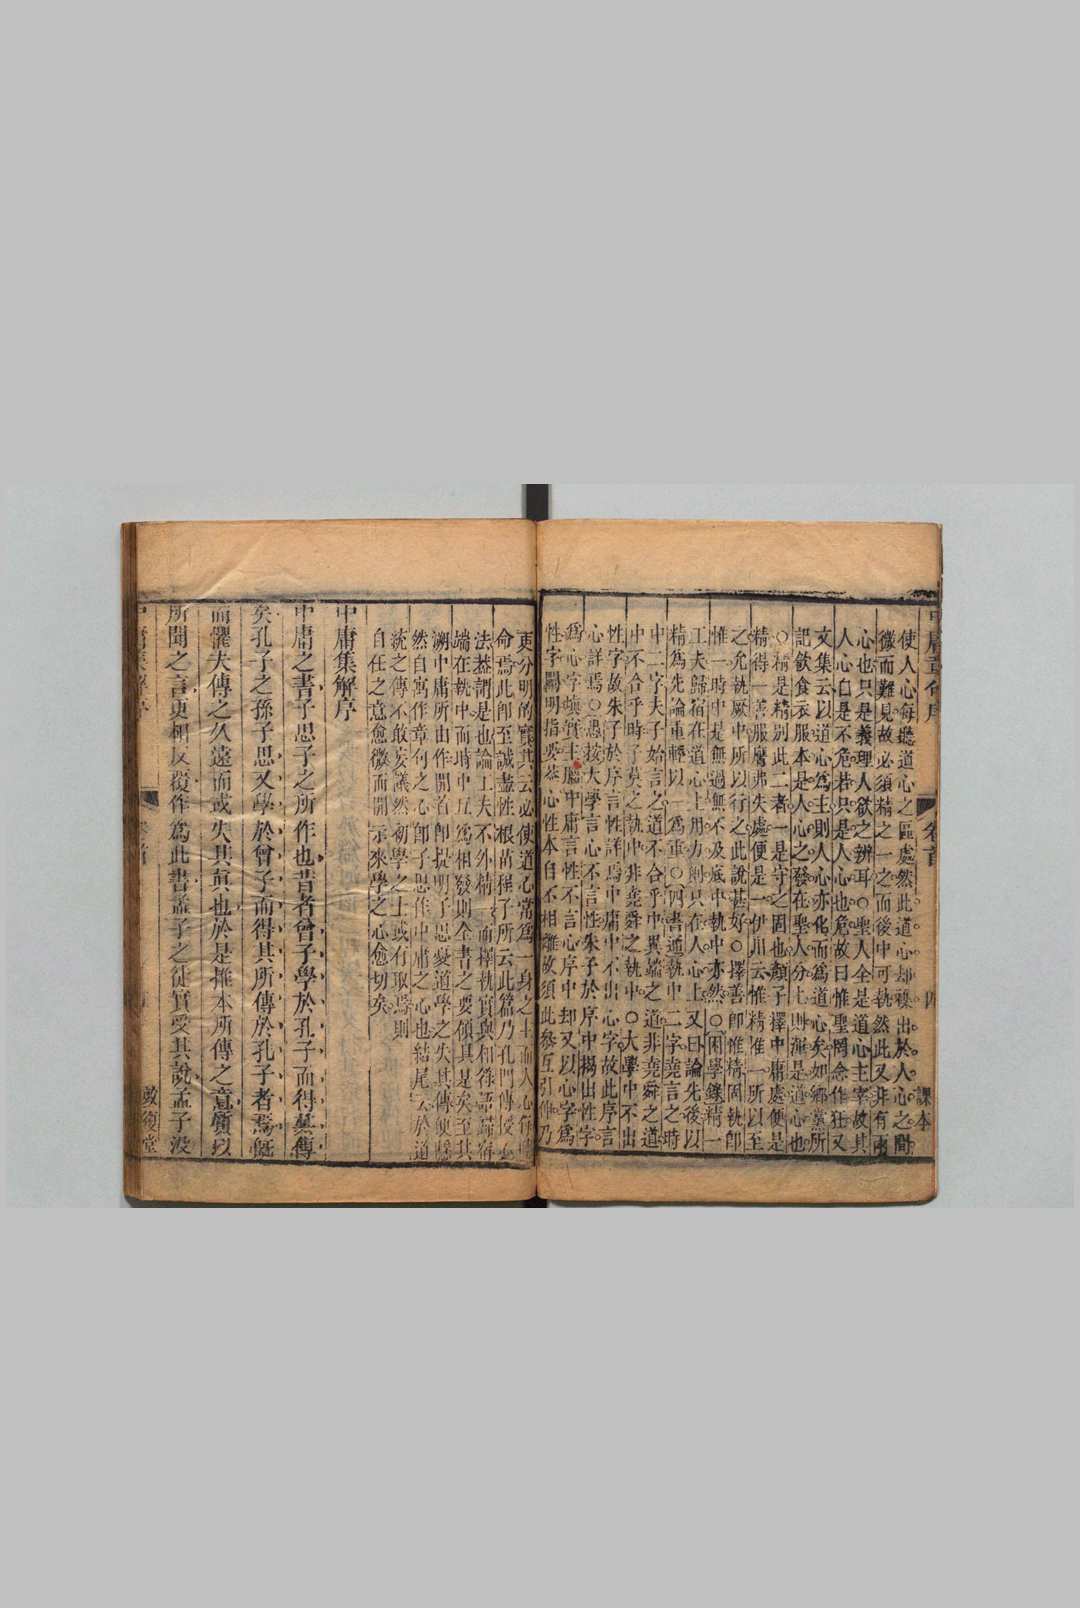 使人心每聽道心之區處然此道心却雜出於人心之間
微而難見故必須精之一之而後中可執然此又非有兩
心也只是義理人欲之辨耳〇聖人全是道心主宰故其
人心自是不危若只是人心也危故曰惟聖罔念作狂又
文集云以道心為主則人心亦化而為道心矣如鄉黨所
記飲食衣服本是人心之發在聖人分上則渾是道心也
〇精是精別此二者一是守之固也顏子擇中庸處便是
精得一善服膺弗失處便是一伊川云惟精惟一所以至
之允執厥中所以行之此說甚好〇擇善即惟精固執即
惟一時中是無過無不及底中執中亦然〇困學錄精一
工夫歸宿在道心上用力則只在人心上又曰論先後以
精為先論重輕以一為重〇四書通執中二字堯言之時
中二字夫子始言之道不合乎中異端之道非堯舜之道
中不合乎時子莫之執中非堯舜之執中〇大學中不出
性字故朱子於序言性詳焉中庸中不出心字故此序言
心詳焉〇愚按大學言心不言性朱子於序中揭出性字
為心字填實主腦中庸言性不言心序中却又以心字為
性字闡明指要葢心性本自不相離故須此參互引伸乃
更分明的實其云必使道心常為一身之主而人心每聽
命焉此即至誠盡性根苗程子所云此篇乃孔門傳授心
法葢謂是也論工夫不外精一而擇執實與相符語歸宿
端在執中而時中互為相發則全書之要領具是矣至其
溯中庸所由作開首即提明子思憂道學之失其傳便隱
然自寓作章句之心即子思作中庸之心也結尾云於道
統之傳不敢妄議然初學之士或有取焉則
自任之意愈微而開示來學之心愈切矣
中庸集解序
中庸之書子思子之所作也昔者曾子學於孔子而得其傳
矣孔子之孫子思又學於曾子而得其所傳於孔子者焉旣
而懼夫傳之久遠而或失其眞也於是推本所傳之意質以
所聞之言更相反覆作為此書孟子之徒實受其說孟子沒
中庸章句序
卷首
四
課本
中庸集解序
卷首
五
敦復堂